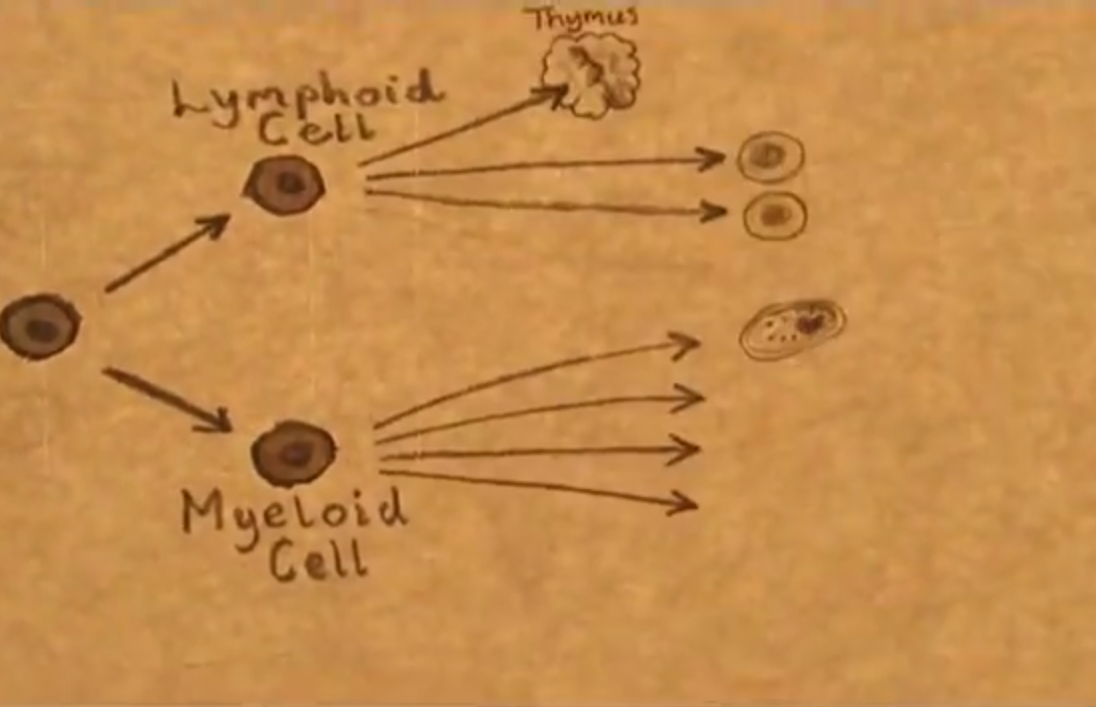 Thymus
Lymphoid
Cell
Myeloid
Cell